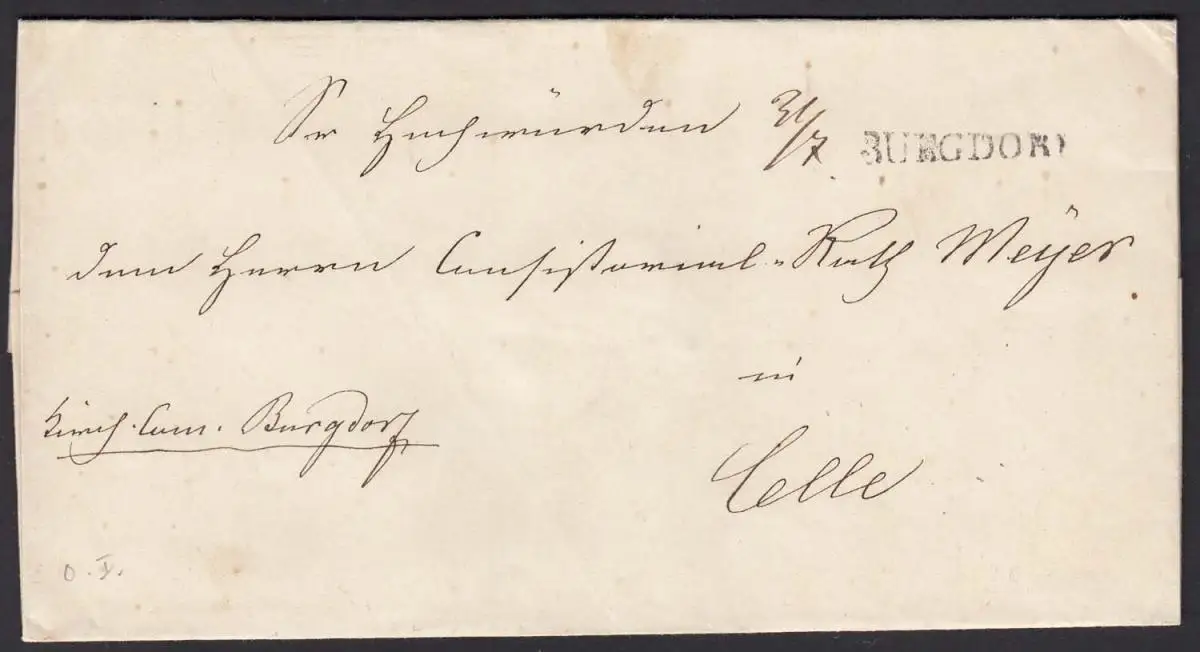 Sr Hochwürden 31/7 BURGDORF
dem Herrn Consistorial-Rath Meÿer
in
Kirch. Com. Burgdorf
Celle
O. I.